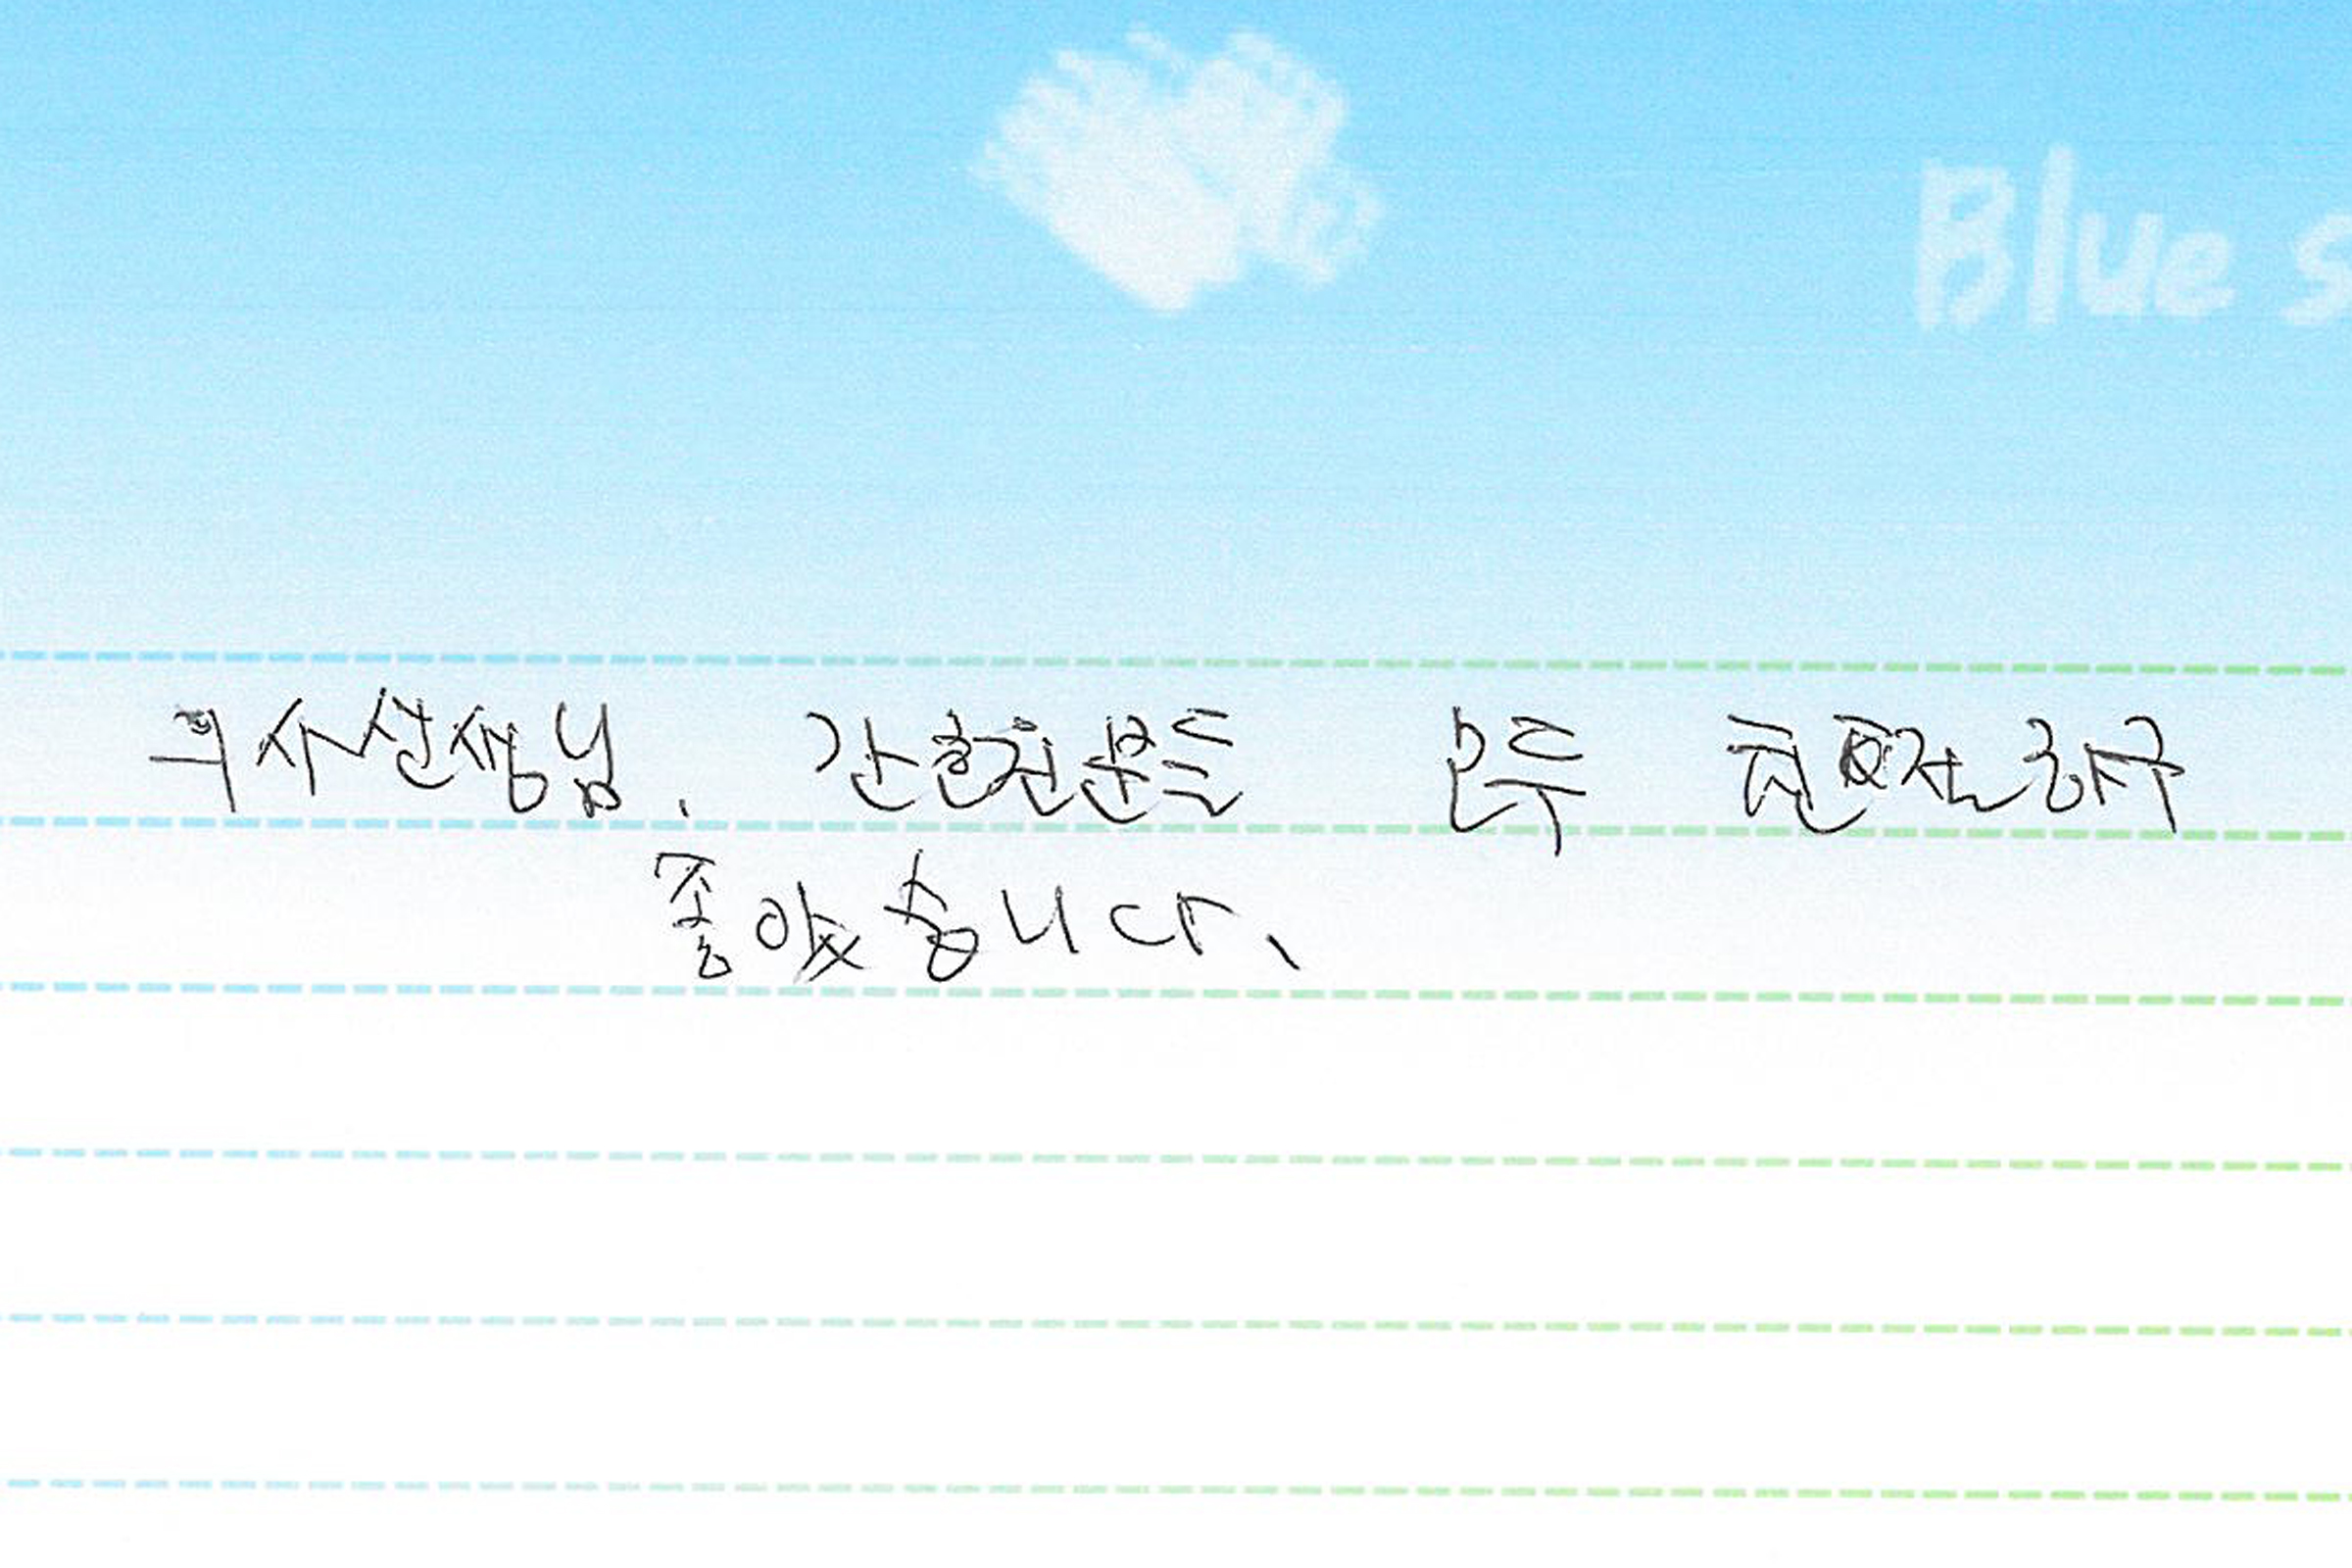 Blue s
의사선생님. 간호진분들 모두 친절하구
좋았습니다.